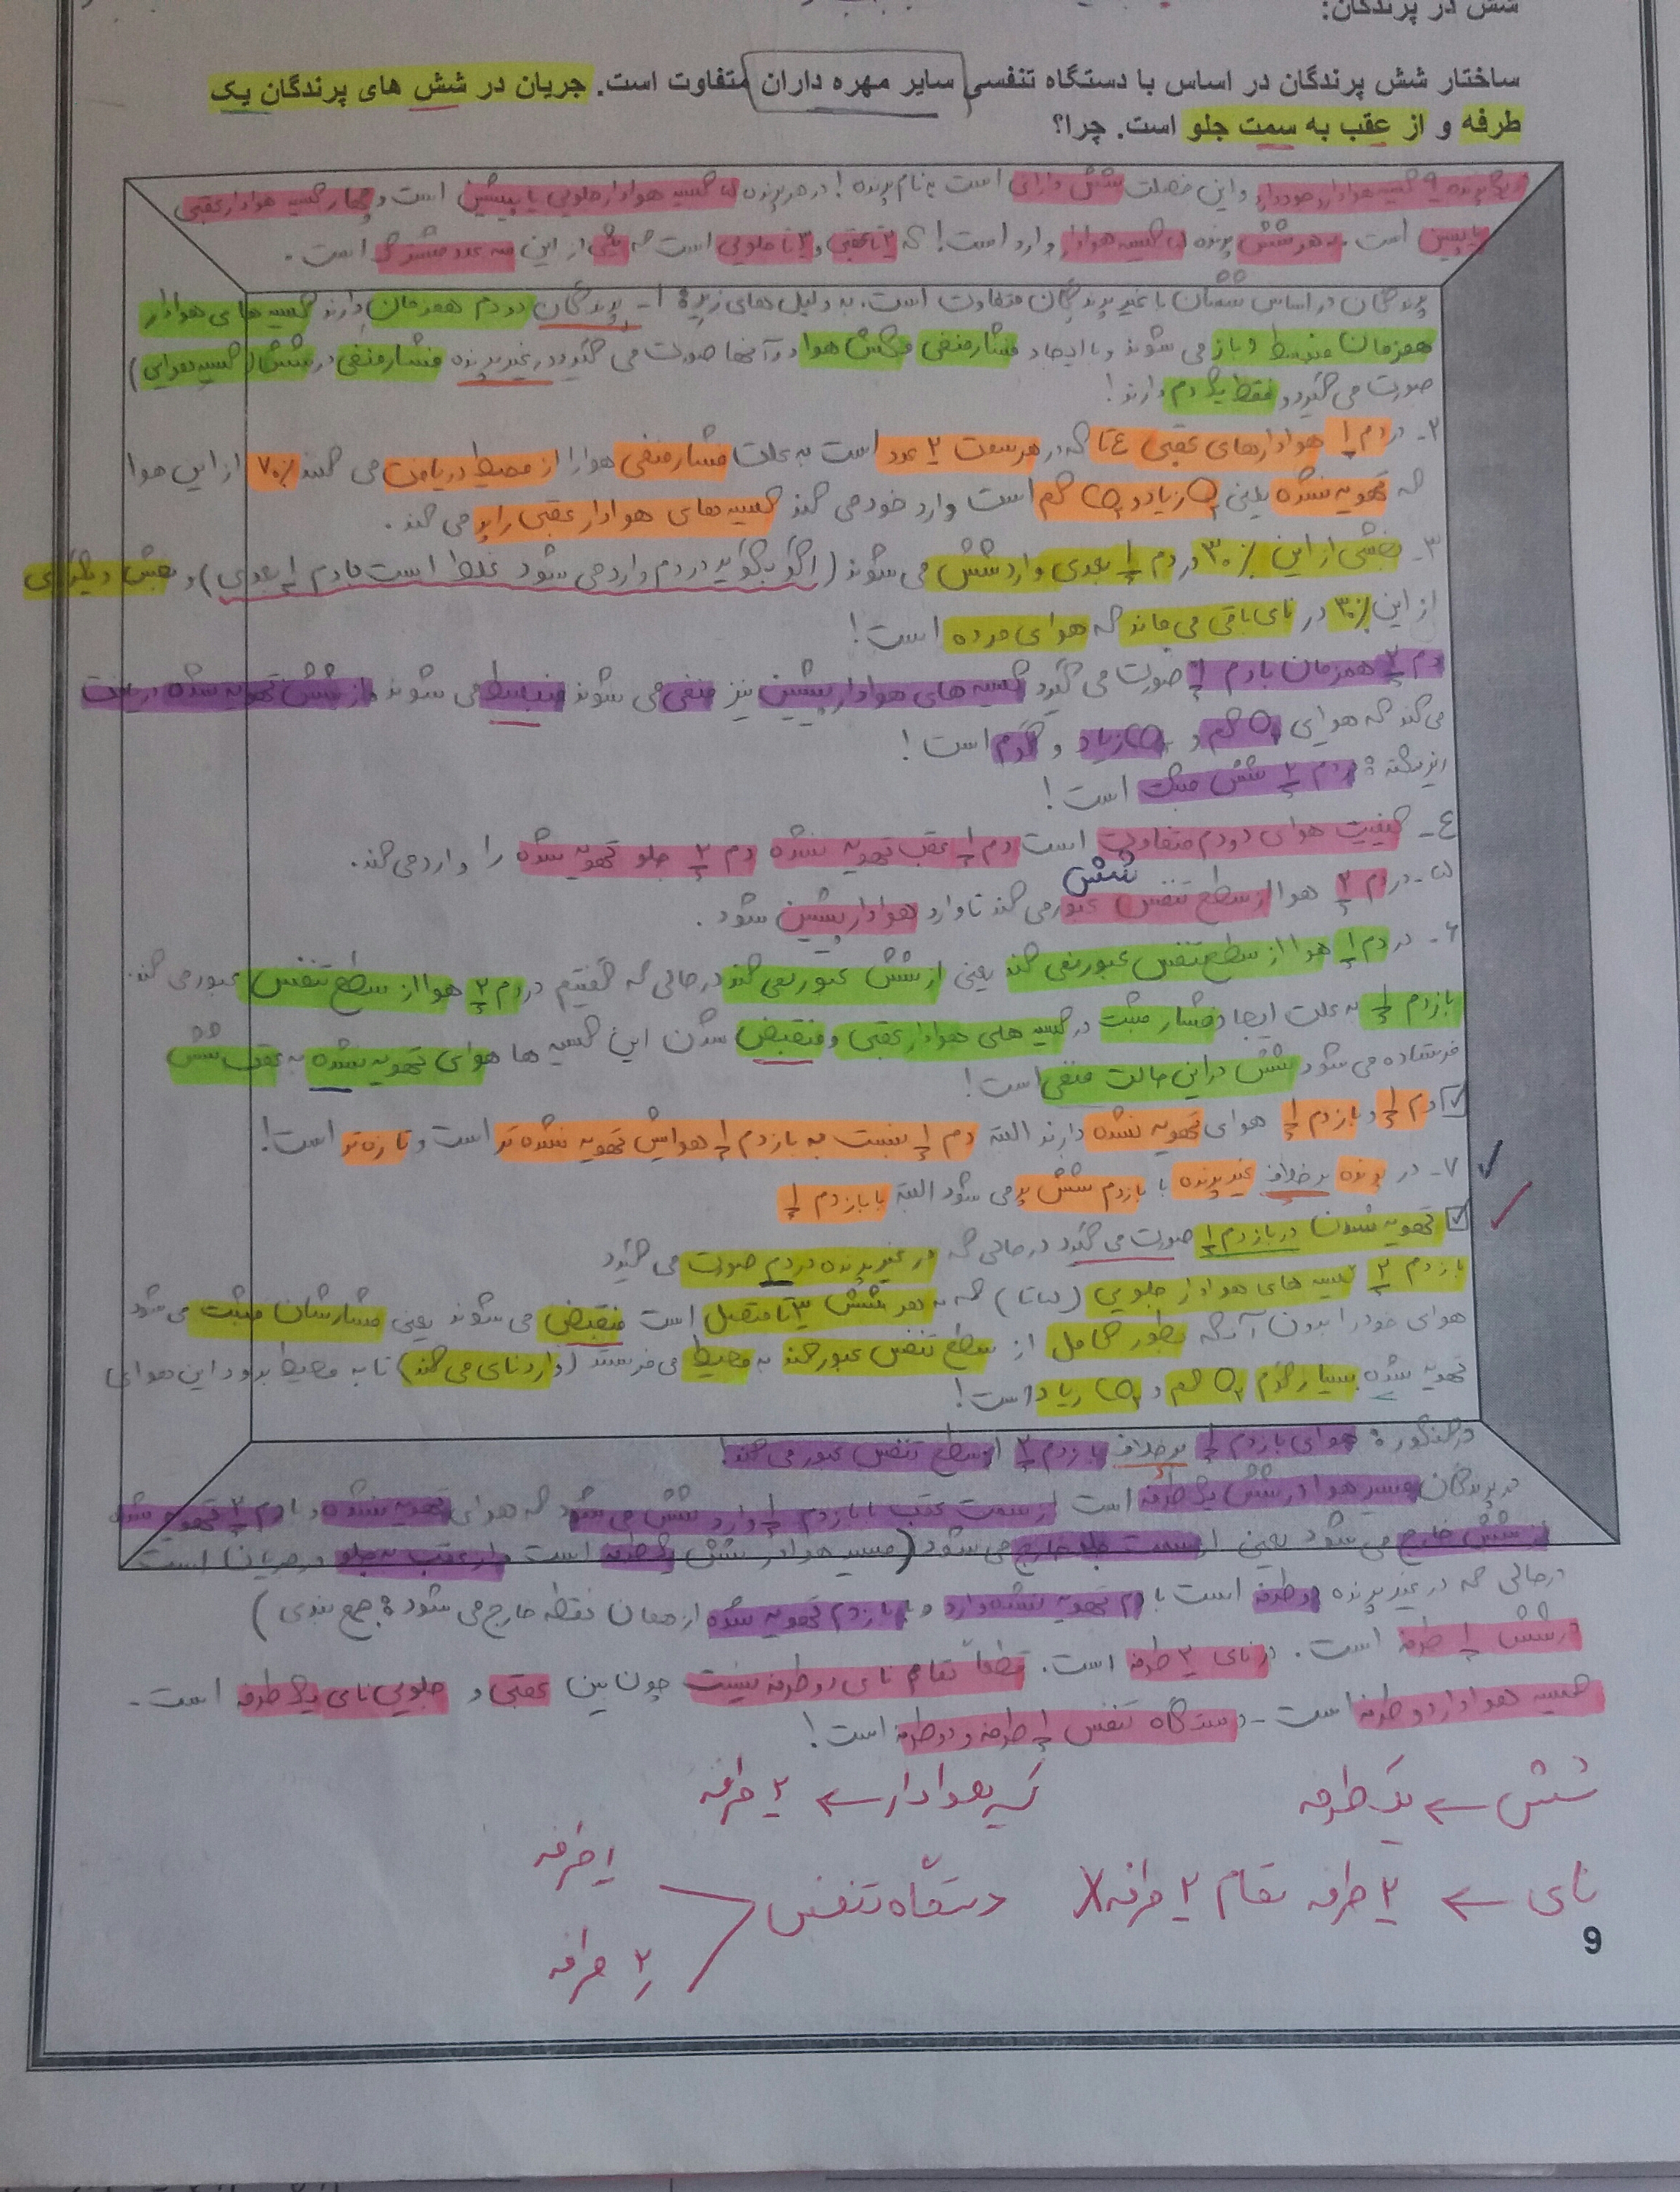 شش در پرندگان:
ساختار شش پرندگان در اساس با دستگاه تنفسی سایر مهره داران متفاوت است. جریان در شش های پرندگان یک
طرفه و از عقب به سمت جلو است. چرا؟
هر پرنده ۹ کیسه هوادار وجود دارد و این خصلت شش دارای است به نام پرنده! در هر پرنده ۵ کیسه هوادار جلویی یا پیشین است و چهار کیسه هوادار عقبی
یا پسین است. به هر شش پرنده ۵ کیسه هوادار وارد است! که ۲ تا عقبی و ۳ تا جلویی است که یکی از این سه عدد مشترک است.
پرندگان در اساس ششان با غیر پرندگان متفاوت است. به دلیل های زیر: ۱- پرندگان دو دم همزمان دارند کیسه های هوادار
همزمان منبسط و باز می شوند و با ایجاد فشار منفی مکش هوا در آنها صورت می گیرد در غیر پرنده فشار منفی در شش (کیسه هوایی)
صورت می گیرد و فقط یک دم دارند!
۲- در دم ۱ هوادارهای عقبی ٤ تا که در هر سمت ۲ عدد است به علت فشار منفی هوا را از محیط دریافت می کنند ۷۰٪ از این هوا
که تهویه نشده یعنی O₂ زیاد و CO₂ کم است وارد خود می کند کیسه های هوادار عقبی را پر می کند.
۳- بخشی از این ۳۰٪ در دم ۱ بعدی وارد شش می شوند (اگر بگوید در دم وارد می شود غلط است ما دم ۱ بعدی) و بخش دیگری
از این ۳۰٪ در نای باقی می ماند که هوای مرده است!
دم ۲ همزمان با دم ۱ صورت می گیرد کیسه های هوادار پیشین نیز منفی می شوند منبسط می شوند و از شش تهویه شده دریافت
می کند که هوای O₂ کم و CO₂ زیاد و گرم است!
ریز نکته: در دم ۲ شش مثبت است!
٤- کیفیت هوای دو دم متفاوت است دم ۱ عقب تهویه نشده دم ۲ جلو تهویه شده را وارد می کند.
۵- در دم ۲ هوا از سطح تنفس شش عبور می کند تا وارد هوادار پیشین شود.
۶- در دم ۱ هوا از سطح تنفس عبور نمی کند یعنی از شش عبور نمی کند در حالی که گفتیم در دم ۲ هوا از سطح تنفس عبور می کند.
بازدم ۱ به علت ایجاد فشار مثبت در کیسه های هوادار عقبی و منقبض شدن این کیسه ها هوای تهویه نشده به عقب شش
فرستاده می شود شش در این حالت منفی است!
☑ دم ۱ و بازدم ۱ هوای تهویه نشده دارند البته دم ۱ نسبت به بازدم ۱ هوایش تهویه نشده تر است و تازه تر است!
۷- در پرنده برخلاف غیر پرنده با بازدم شش پر می شود البته با بازدم ۱
☑ تهویه شدن در بازدم ۱ صورت می گیرد در حالی که در غیر پرنده در دم صورت می گیرد
بازدم ۲ کیسه های هوادار جلویی (۵ تا) که به هر شش ۳ تا متصل است منقبض می شوند یعنی فشارشان مثبت می شود
هوای خود را بدون آنکه بطور کامل از سطح تنفس عبور کند به محیط می فرستد (وارد نای می کند) تا به محیط برود این هوای
تهویه شده بسیار گرم O₂ کم و CO₂ زیاد است!
در کنکور: هوای بازدم ۱ برخلاف بازدم ۲ از سطح تنفس عبور می کند!
در پرندگان مسیر هوا در شش یک طرفه است از سمت عقب با بازدم ۱ وارد شش می شود که هوای تهویه نشده و با دم ۲ تهویه شده
از شش خارج می شود یعنی از سمت جلو خارج می شود (مسیر هوا در شش یک طرفه است و از عقب به جلو در جریان است
در حالی که در غیر پرنده دو طرفه است با دم تهویه نشده وارد و با بازدم تهویه شده از همان نقطه خارج می شود: جمع بندی)
در شش ۱ طرفه است. در نای ۲ طرفه است. قطعاً تمام نای دو طرفه نیست چون بین عقبی و جلویی نای یک طرفه است.
کیسه هوادار دو طرفه است - دستگاه تنفس ۱ طرفه و دو طرفه است!
شش ← یک طرفه
کیسه هوادار ← ۲ طرفه
نای ← ۲ طرفه تمام ۲ طرفه X
دستگاه تنفس
۱ طرفه
۲ طرفه
9